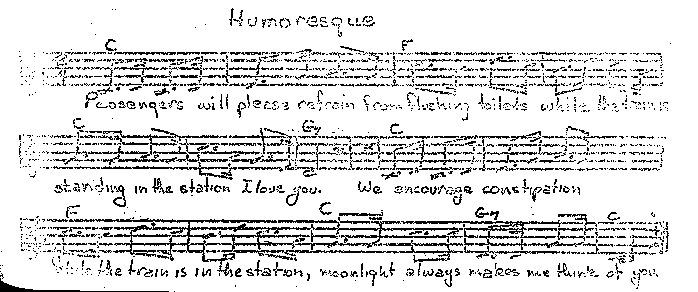 Humoresque
C F
Passengers will please refrain from flushing toilets while the train is
C G7 C
standing in the station I love you. We encourage constipation
F C G7 C
While the train is in the station, moonlight always makes me think of you